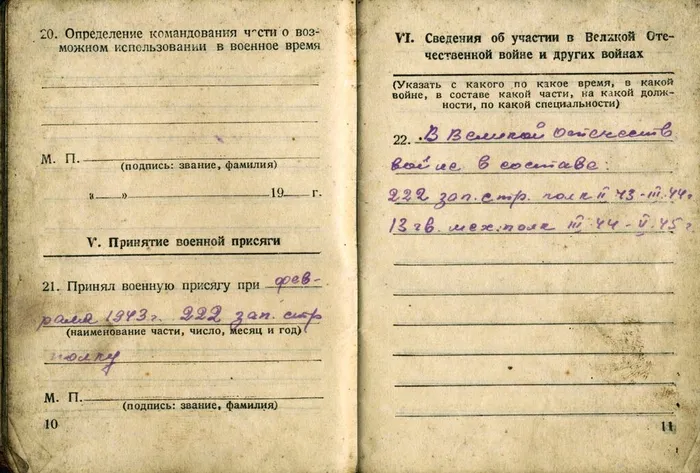 20. Определение командования части о воз-
можном использовании в военное время
М. П.
(подпись: звание, фамилия)
„ “ 19 г.
V. Принятие военной присяги
21. Принял военную присягу при фев-
рале 1943г. 222 зап. стр
(наименование части, число, месяц и год)
полку
М. П.
(подпись: звание, фамилия)
10
VI. Сведения об участии в Великой Оте-
чественной войне и других войнах
(Указать с какого по какое время, в какой
войне, в составе какой части, на какой долж-
ности, по какой специальности)
22. В Великой отечеств
войне в составе:
222 зап. стр. полк II 43 - III. 44г
13 гв. мех. полк III. 44 - V. 45 г
11